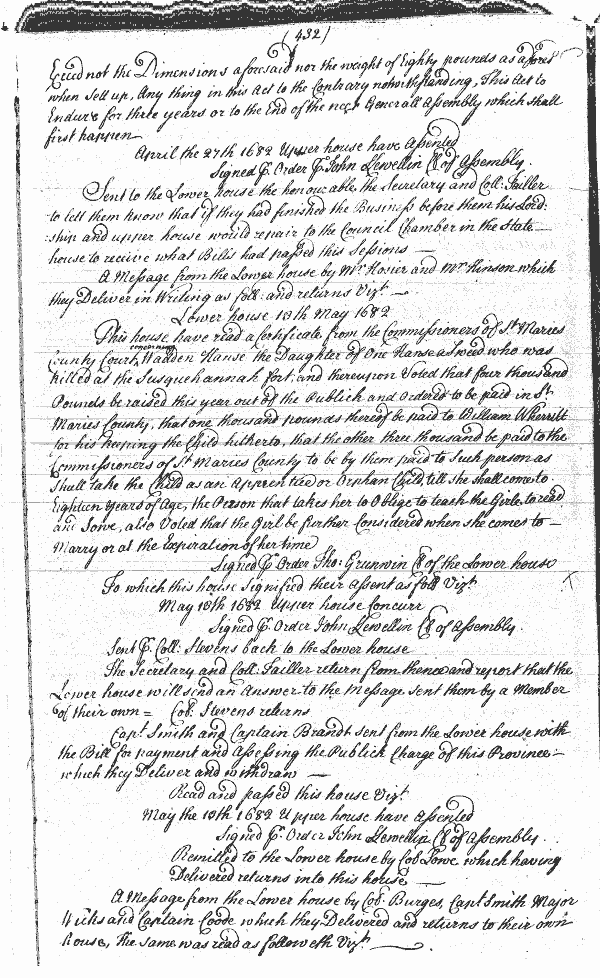 (432)
Exceed not the Dimensions aforesaid nor the weight of Eighty pounds as afores
when sell up, Any thing in this Act to the Contrary notwithstanding, This Act to
Endure for three years or to the End of the next Generall Assembly which shall
first happen
April the 27th 1682 Upper house have Assented
Signed P. Order P. John Llewellin Cl of Assembly.
Sent to the Lower house the honourable the Secretary and Coll: Tailler
to tell them know that if they had finished the Business before them his Lord:
ship and upper house would repair to the Council Chamber in the State
house to receive what Bills had passed this Sessions —
A Message from the Lower house by Mr. Hosier and Mr. Hinson which
they Deliver in Writing as foll: and returns Vizt. —
Lower house 13th May 1682
This house have read a Certificate from the Commissioners of St Maries
County Court, concerning Wadden Hanse the Daughter of One Hanse a Swed who was
killed at the Susquehannah fort, and thereupon Voted that four thousand
Pounds be raised this year out of the Publick and Ordered to be paid in St.
Maries County, that one thousand pounds thereof be paid to William Wherritt
for his keeping the Child hitherto, that the other three thousand be paid to the
Commissioners of St Maries County to be by them paid to Such person as
Shall take the Child as an Apprentice or Orphan Child till She shall come to
Eighteen Years of Age, the Person that takes her to Oblige to teach the Girle to read
and Sowe, also Voted that the Girl be further Considered when she comes to —
Marry or at the Expiration of her time
Signed P. Order Tho: Grunwin Cl of the Lower house
To which this house Signified their Assent as foll Vizt.
May 13th 1682 Upper house Concurr
Signed P. Order John Llewellin Cl of Assembly.
Sent P. Coll: Stevens back to the Lower house
The Secretary and Coll: Tailler return from thence and report that the
Lower house will send an Answer to the Message sent them by a Member
of their own = Col: Stevens returns
Capt. Smith and Captain Brandt sent from the Lower house with
the Bill for payment and Assessing the Publick Charge of this Province —
which they Deliver and withdraw —
Read and passed this house Vizt.
May the 13th 1682 Upper house have Assented
Signed P. Order John Llewellin Cl of Assembly.
Remitted to the Lower house by Col Lowe which having
Delivered returns into this house —
A Message from the Lower house by Col: Burges, Capt Smith Major
and Captain Coode which they Delivered and returns to their own
house, The same was read as followeth Vizt. —